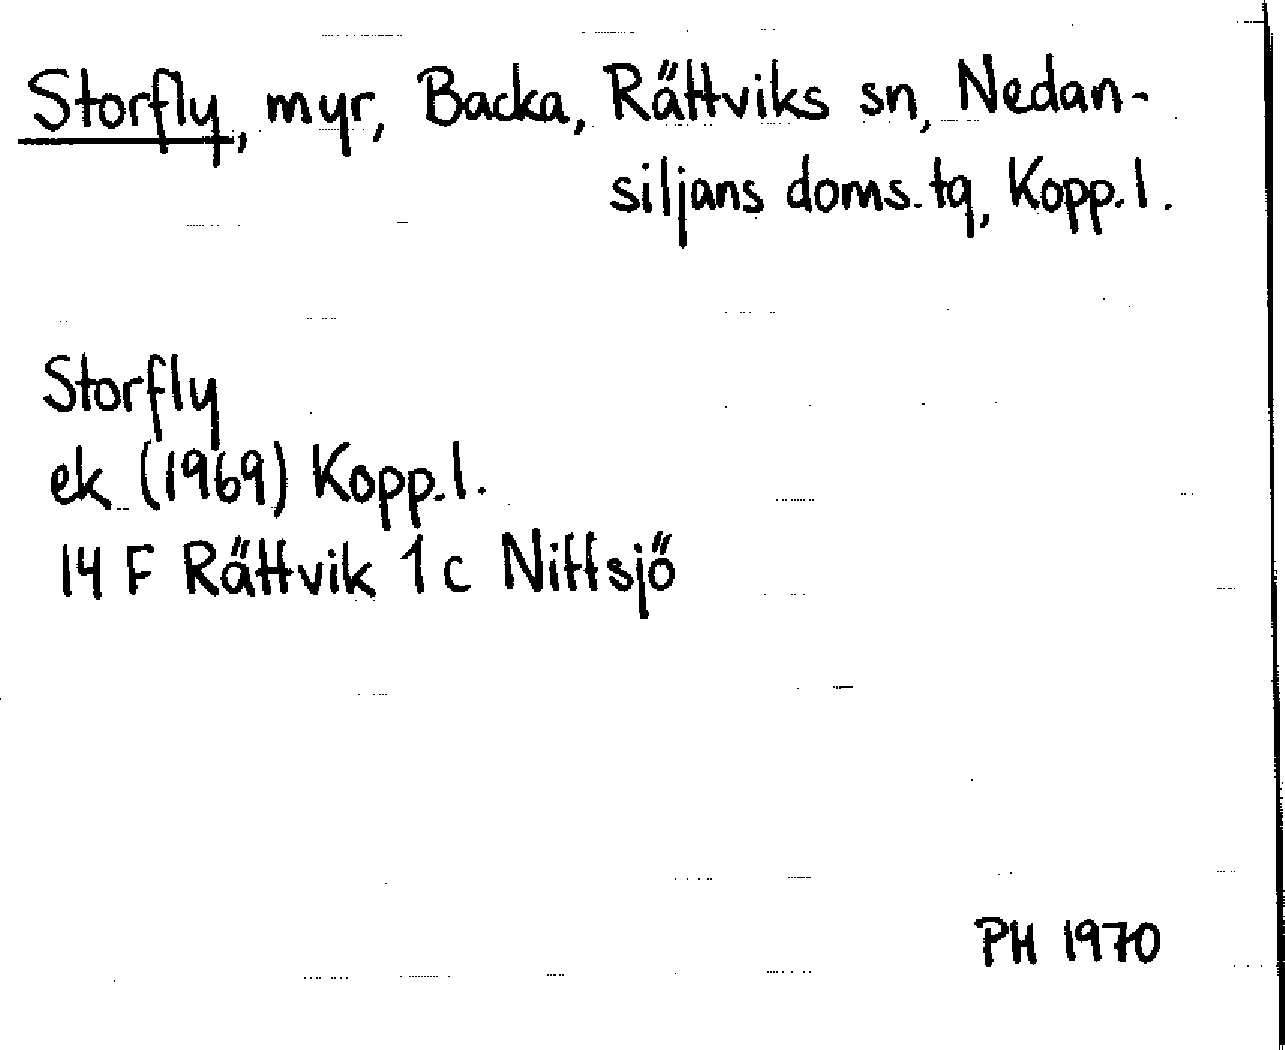 Storfly, myr, Backa, Rättviks sn, Nedan-
siljans doms. tg, Kopp. l.
Storfly
ek (1969) Kopp. l.
14 F Rättvik 1 c Nittsjö
PH 1970